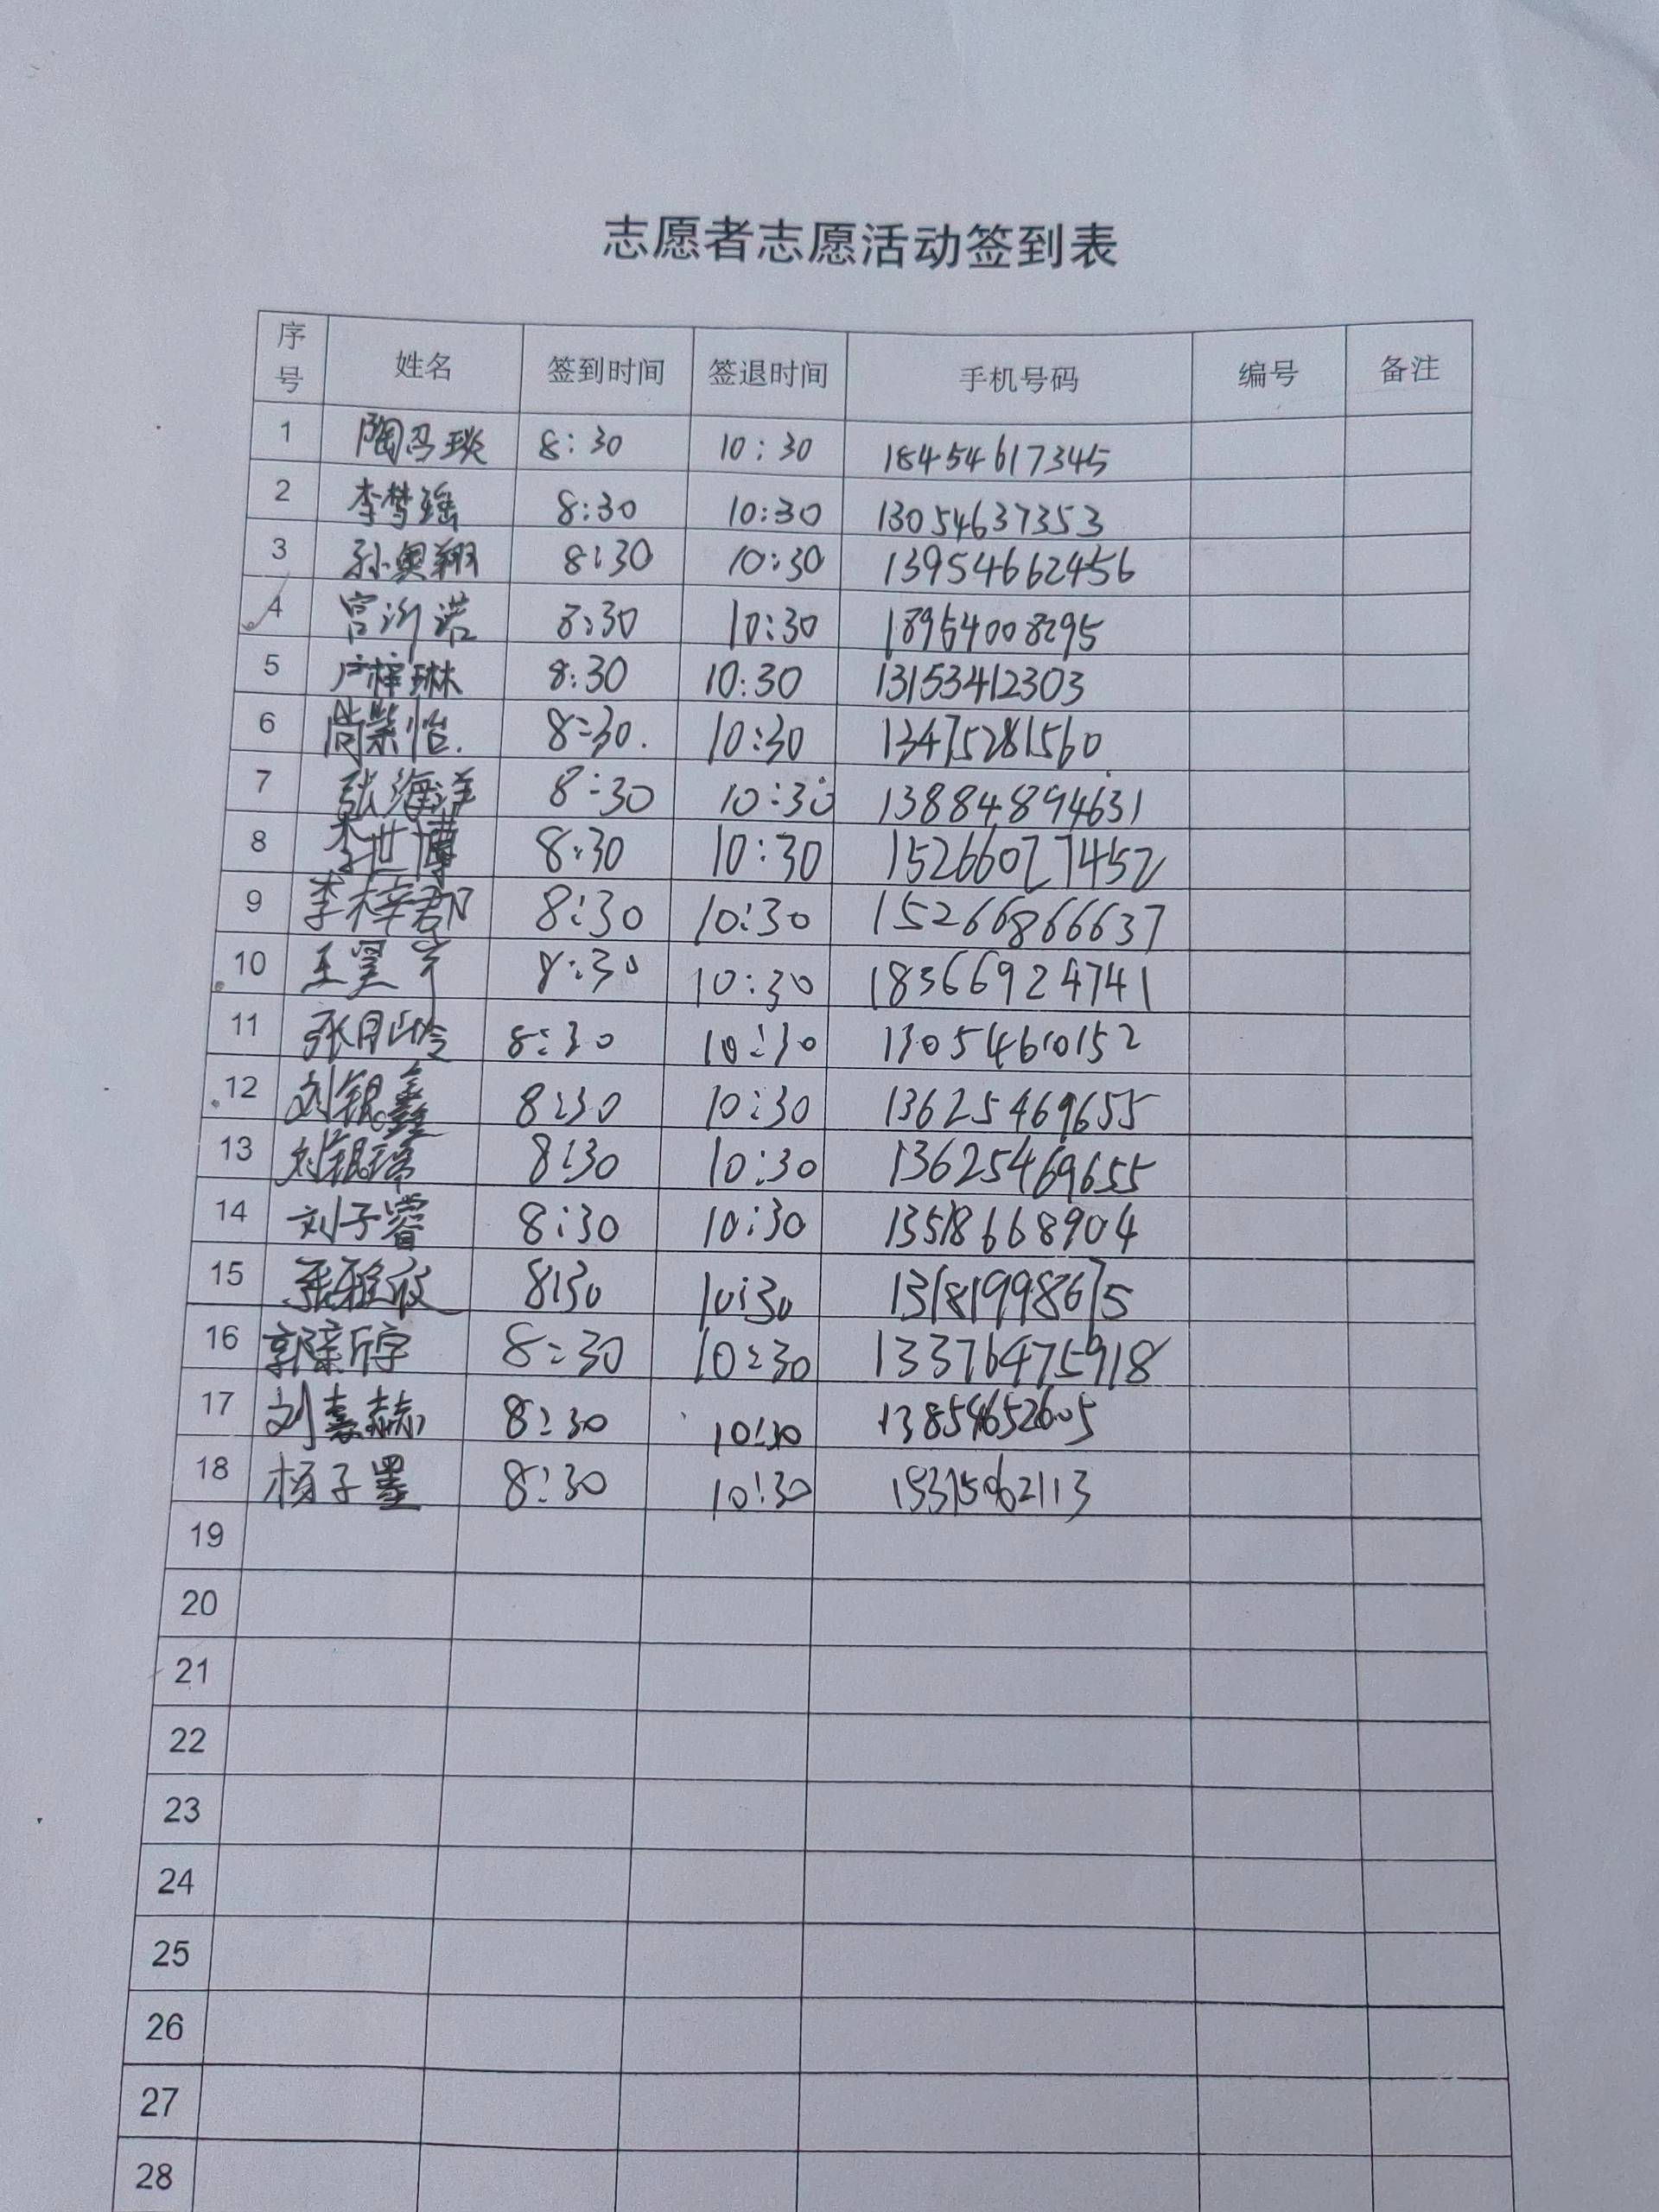 志愿者志愿活动签到表
序号 姓名 签到时间 签退时间 手机号码 编号 备注
1 陶 琰 8:30 10:30 18454617345
2 李梦瑶 8:30 10:30 13054637353
3 孙奥翔 8:30 10:30 13954662456
4 宫沂诺 8:30 10:30 18954008295
5 卢梓琳 8:30 10:30 13153412303
6 尚紫怡. 8:30. 10:30 13475281560
7 张海洋 8:30 10:30 13884894631
8 李世博 8:30 10:30 15266027452
9 李梓郡 8:30 10:30 15266866637
10 王昊宇 8:30 10:30 18366924741
11 张月 8:30 10:30 13054610152
12 刘银鑫 8:30 10:30 13625469655
13 刘银 8:30 10:30 13625469655
14 刘子睿 8:30 10:30 13518668904
15 张雅 8:30 10:30 13181998675
16 郭 宇 8:30 10:30 13376475918
17 刘 赫 8:30 10:30 13854652605
18 杨子墨 8:30 10:30 15315062113
19
20
21
22
23
24
25
26
27
28